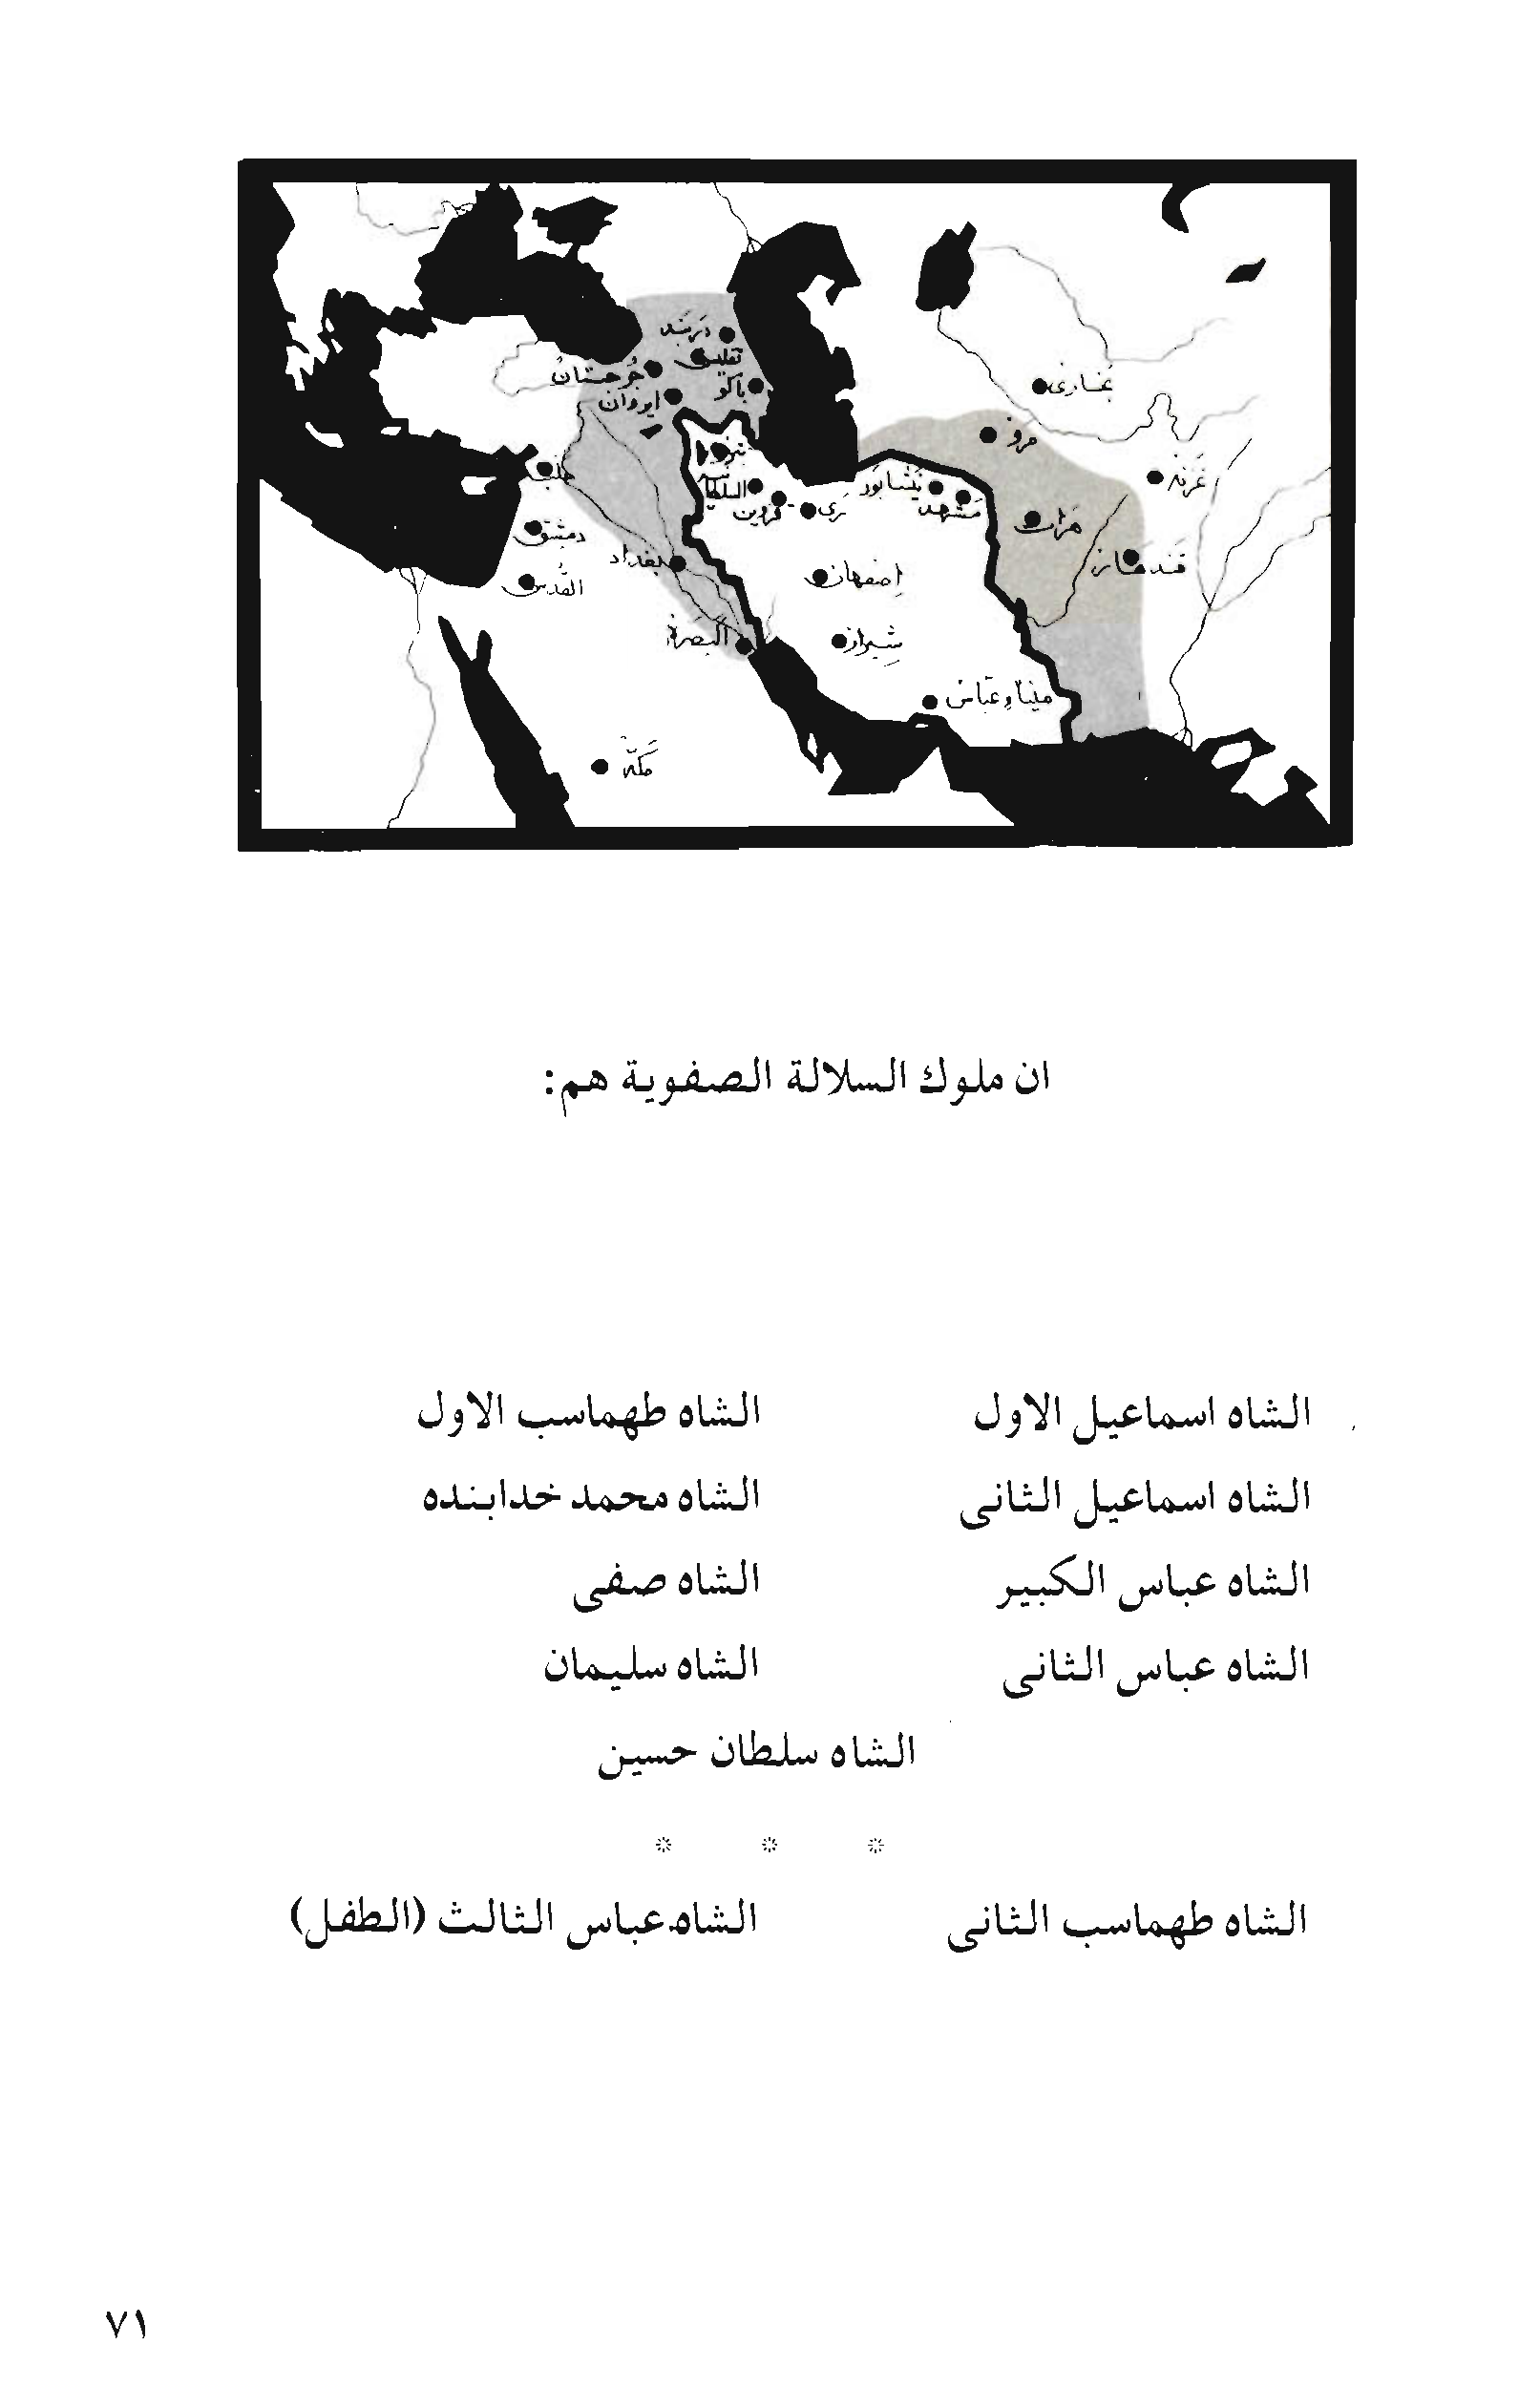 دربند
تفليس
جرجستان
باكو
ايروان
بخارى
مرو
تبريز
حلب
غزنة
نيشابور
مشهد
قزوين
رى
هرات
دمشق
بغداد
قندهار
اصفهان
القدس
البصرة
شيراز
ميناء عباس
مكة
ان ملوك السلالة الصفوية هم:
الشاه اسماعيل الاول الشاه طهماسب الاول
الشاه اسماعيل الثانى الشاه محمد خدابنده
الشاه عباس الكبير الشاه صفى
الشاه عباس الثانى الشاه سليمان
الشاه سلطان حسين
* * *
الشاه طهماسب الثانى الشاه عباس الثالث (الطفل)
٧١